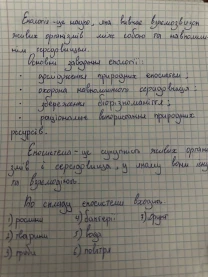 Екологія - це наука, яка вивчає взаємозв'язок
живих організмів між собою та навколиш-
нім середовищем.
Основні завдання екології:
дослідження природних екосистем;
охорона навколишнього середовища;
збереження біорізноманіття;
раціональне використання природних
ресурсів.
Екосистема - це сукупність живих органі-
змів і середовища, у якому вони
та взаємодіють.
До складу екосистеми входять
1) рослини 4) бактерії 7) ґрунт
2) тварини 5) вода
3) гриби 6) повітря